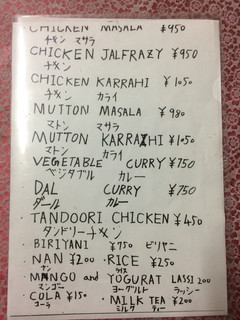 CHICKEN MASALA ¥950
チキン マサラ
CHICKEN JALFRAZY ¥950
チキン
CHICKEN KARRAHI ¥1050
チキン カライ
MUTTON MASALA ¥980
マトン マサラ
MUTTON KARRAHI ¥1050
マトン カライ
VEGETABLE CURRY ¥750
ベジタブル カレー
DAL CURRY ¥750
ダール カレー
TANDOORI CHICKEN ¥450
タンドリーチキン
・BIRIYANI ¥750 ビリヤニ
・NAN ¥200 ・RICE ¥250
ナン ライス
・MANGO and YOGURAT LASSI 200
マンゴー ヨーグルト ラッシー
・COLA ¥150 ・MILK TEA ¥200
コーラ ミルク ティー